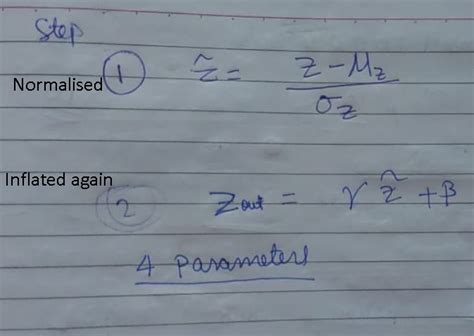 Step
Normalised ① z̃ = (z - μz) / σz
Inflated again
② Zout = γ z̃ + β
4 Parameters